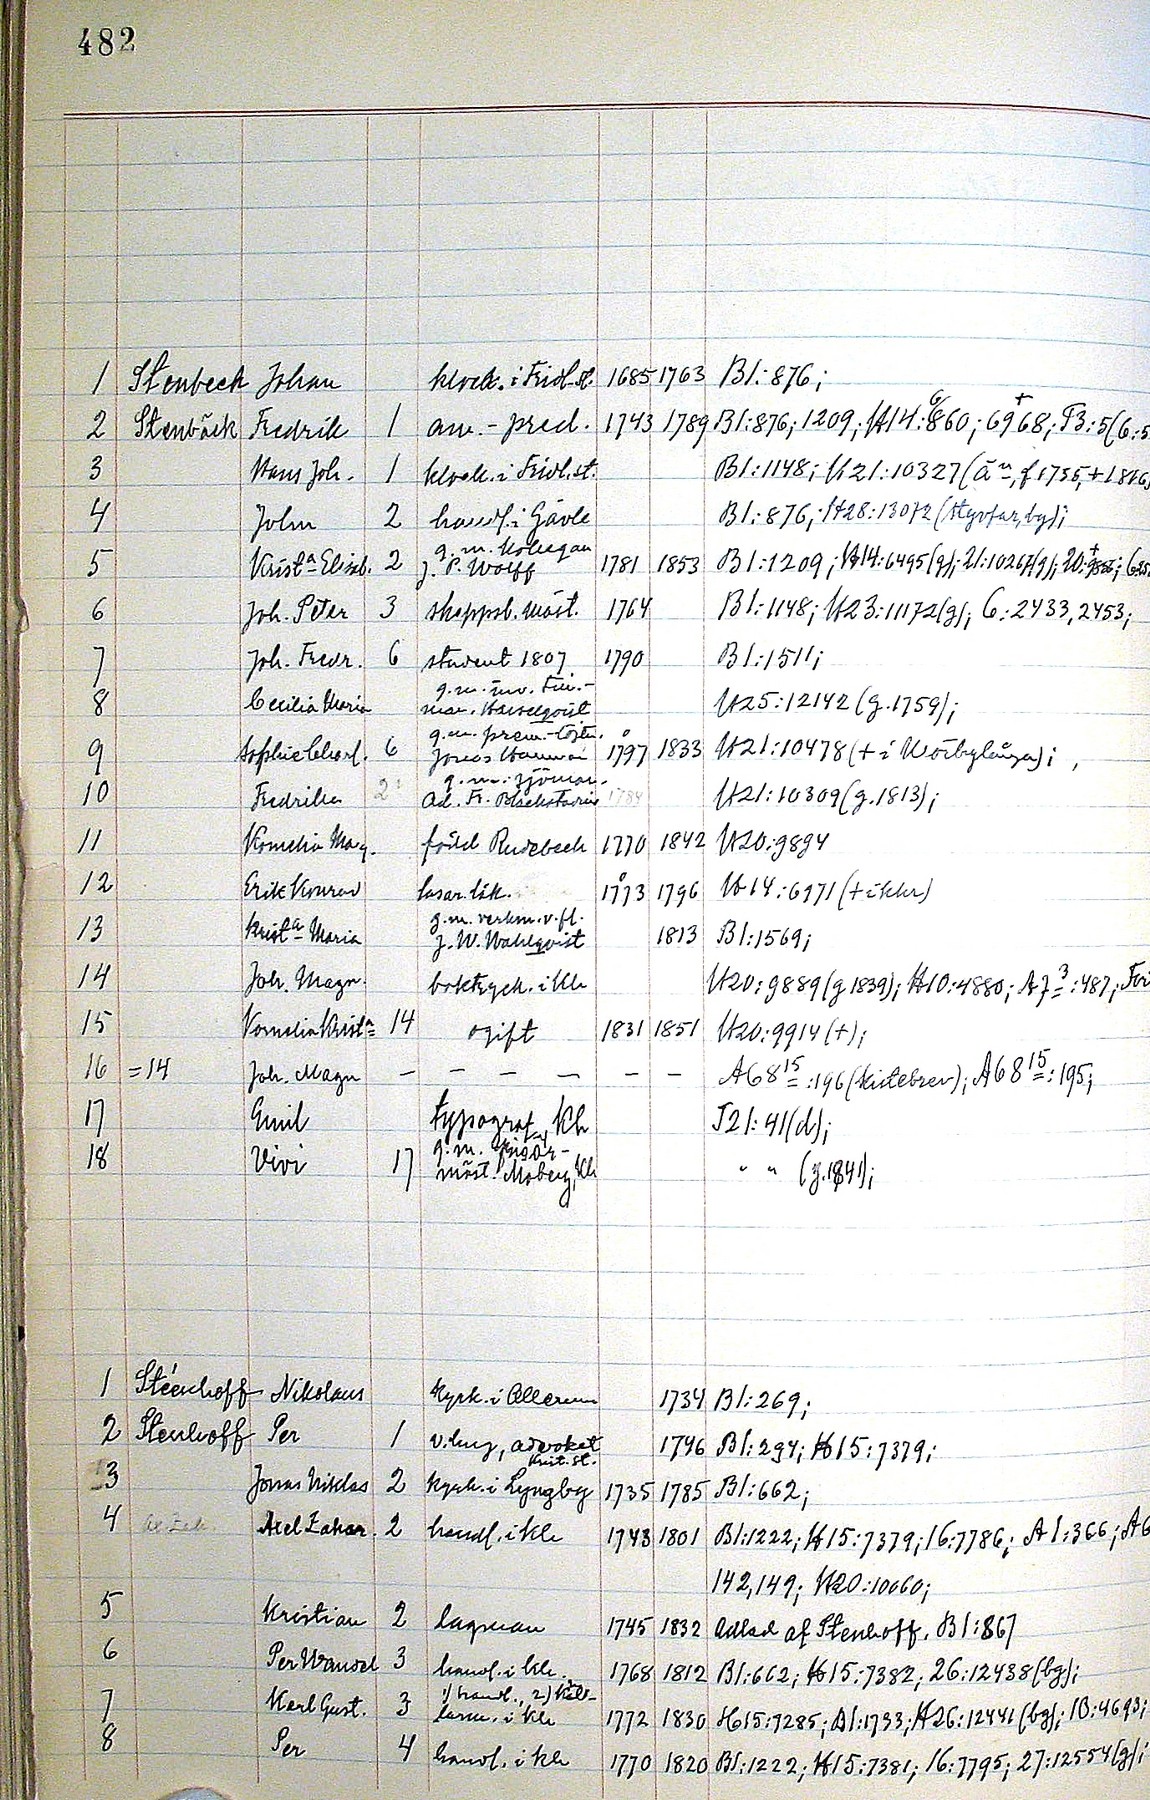 482
1 Stenbeck Johan klock. i Fridl.st. 1685 1763 Bl: 876;
2 Stenbäck Fredrik 1 am.-pred. 1743 1789 Bl: 876; 1209; H14: 6860; 6968; F3: 5
3 Hans Joh. 1 klock. i Fridl.st. Bl: 1148; H21: 10327
4 John 2 handl. i Gävle Bl: 876; H28: 13072 (styvfar, bg);
g. m. kollegan
5 Krist.a Elisab. 2 J. P. Wolff 1781 1853 Bl: 1209; H14: 6495 (g); 21: 10267 (g);
6 Joh. Peter 3 skeppsb. mäst. 1764 Bl: 1148; H23: 11172 (g); C: 2433, 2453;
7 Joh. Fredr. 6 student 1807 1790 Bl: 1511;
8 Cecilia Maria H25: 12142 (g. 1759);
g. m. prem.-löjtn.
9 Sophie Charl. 6 Jonas 1797 1833 H21: 10478
g. m. sjöman
10 Fredrika 2 Ad. Fr. 1784 H21: 10309 (g. 1813);
11 Kornelia Mag. född Rudebeck 1770 1842 H20: 9894
12 Erik Konrad lasar. läk. 1773 1796 H14: 6971
g. m. verkm. v. fl.
13 Krist.a Maria J. W. Wahlqvist 1813 Bl: 1569;
14 Joh. Magn. boktryck. i Kkr H20: 9889 (g 1839); H10: 4880; A7 3: 487;
15 Kornelia Krist.a 14 ogift 1831 1851 H20: 9914 (+);
16 =14 Joh. Magn – – – – – – A68 15: 196 (kistebrev); A68 15: 195;
17 Emil typograf, Kh J21: 41 (d);
g. m.
18 Vivi 17 mäst. Moberg, Kh " " (g. 1841);
1 Steenhoff Nikolaus kyrk. i Allerum 1734 Bl: 269;
2 Stenhoff Per 1 advokat 1746 Bl: 294; H15: 7379;
Krist.st.
3 Jonas Niklas 2 kyrk. i Lyngby 1735 1785 Bl: 662;
4 Axel Zakar. 2 handl. i Kkr 1743 1801 Bl: 1222; H15: 7379; 16: 7786; A1: 366; A6
142, 149; H20: 10060;
5 Kristian 2 lagman 1745 1832 adlad af Stenhoff. Bl: 867
6 Per 3 handl. i Kkr. 1768 1812 Bl: 662; H15: 7382; 26: 12438 (bg);
1) handl., 2)
7 Karl Gust. 3 i Kkr 1772 1830 H15: 7285; Bl: 1733; H26: 12441 (bg); 10: 4693;
8 Per 4 handl. i Kkr 1770 1820 Bl: 1222; H15: 7381; 16: 7795; 27: 12554 (g);